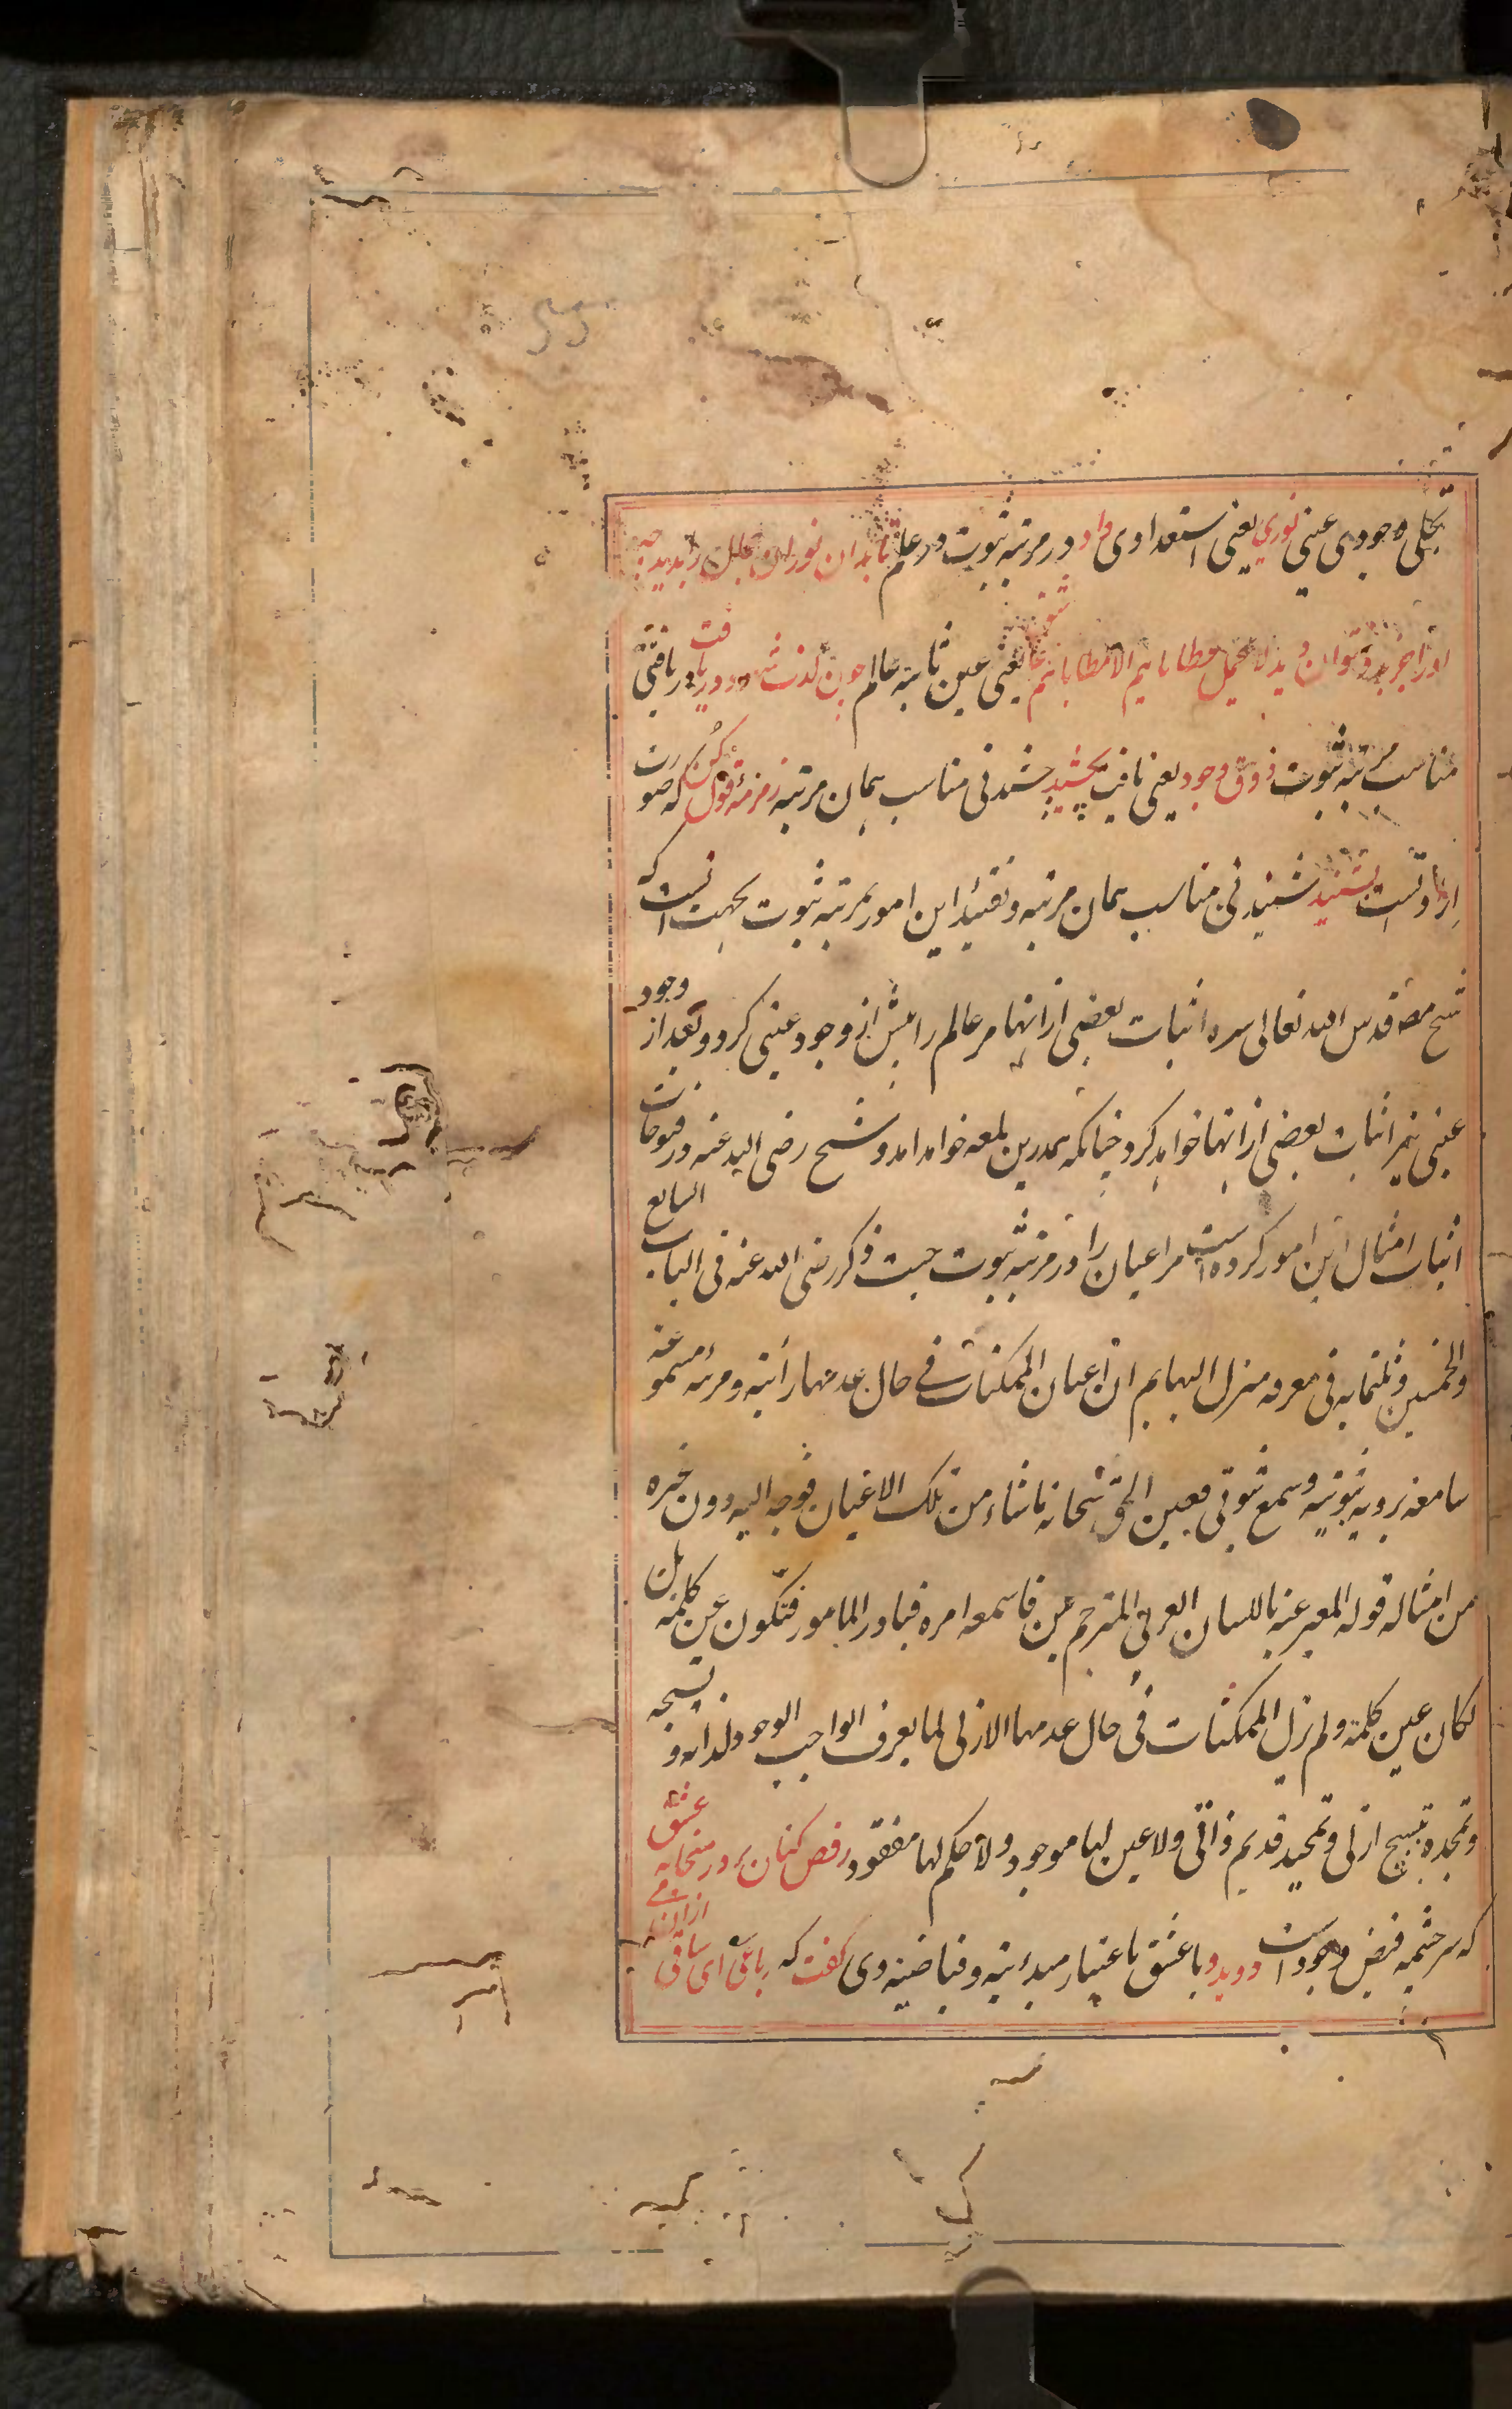 تجلی وجودی عینی نوری یعنی استعدادی داد در مرتبه ثبوت در علم تا بدان نور آن جمال را بدید چه
او را جز بدو نتوان دید لا یحمل عطایاهم الا مطایاهم عاشق یعنی عین ثابته عالم چون لذت شهود دریافت دریافتنی
مناسب مرتبه ثبوت ذوق وجود یعنی یافت بچشید چشیدنی مناسب همان مرتبه زمزمه قول کن که صورت
ارادتست بشنید شنیدنی مناسب همان مرتبه و تقیید این امور بمرتبه ثبوت بجهت انست که
شیخ مصنف قدس الله تعالی سره اثبات بعضی از اینها مر عالم را پیش از وجود عینی کرد و بعد از وجود
عینی نیز اثبات بعضی از اینها خواهد کرد چنانکه همدرین لمعه خواهد امد و شیخ رضی الله عنه در فتوحات
اثبات امثال این امور کرده است مر اعیان را در مرتبه ثبوت حیث ذکر رضی الله عنه فی الباب السابع
والخمسین و ثلثمایه فی معرفه منزل البهایم ان اعیان الممکنات فی حال عدمها رائیة و مرئیه مسموعه
سامعه برویه ثبوتیه و سمع ثبوتی فعین الحق سبحانه ماشاء من تلک الاعیان فوجه الیه دون غیره
من امثاله قوله المعبر عنه باللسان العربی المترجم عن فاسمعه امره فبادر المامور فتکون عن کلمته بل
لکان عین کلمته ولم تزل الممکنات فی حال عدمها الازلی لها یعرف الواجب الوجود لذاته و تسبحه
و تمجده تسبیح ازلی و تمجید قدیم ذاتی ولا عین لها موجود ولا حکم لها مفقود رقص کنان بر در میخانه عشق
که سرچشمه فیض وجود است دوید و با عشق باعتبار مبدئیه و فیاضیه وی گفت که رباعی ای ساقی ازان می